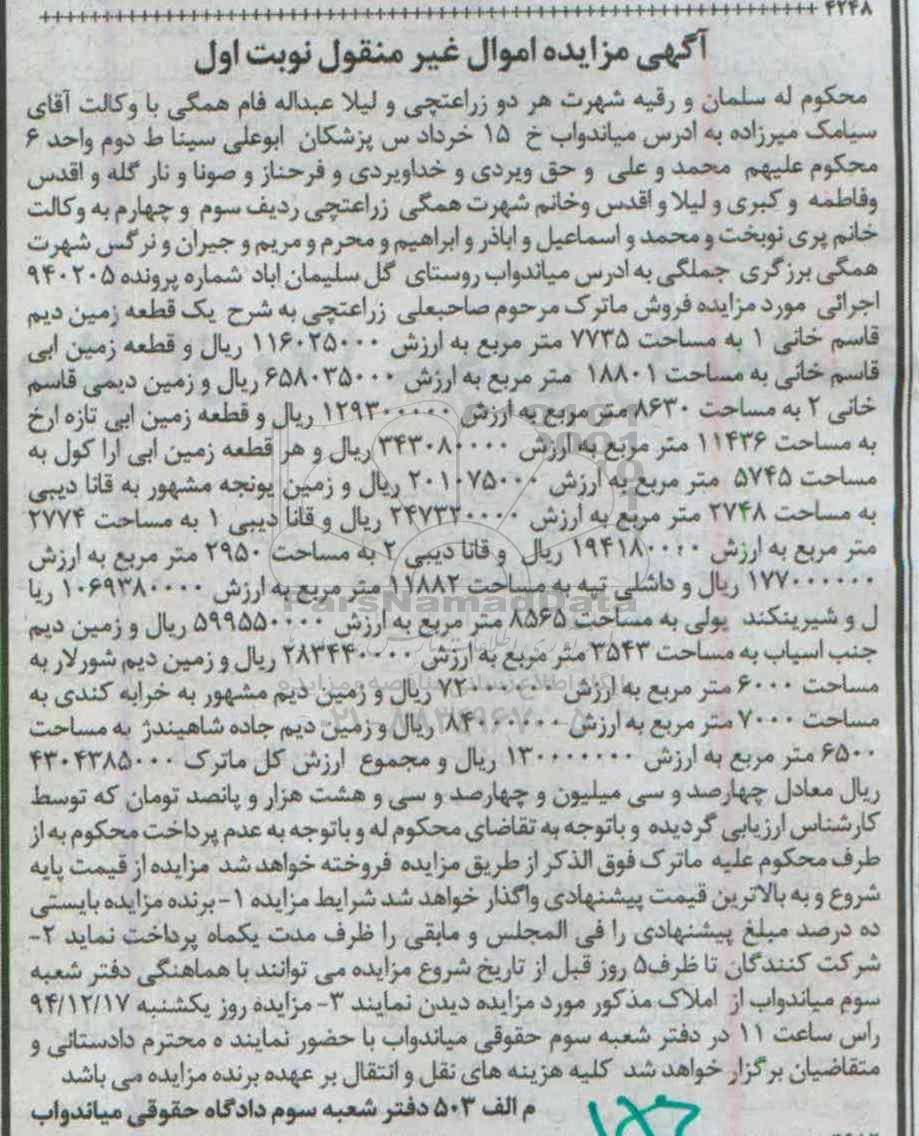 ۴۲۴۸
آگهی مزایده اموال غیر منقول نوبت اول
محکوم له سلمان و رقیه شهرت هر دو زراعتچی و لیلا عبداله فام همگی با وکالت آقای
سیامک میرزاده به ادرس میاندواب خ ۱۵ خرداد س پزشکان ابوعلی سینا ط دوم واحد ۶
محکوم علیهم محمد و علی و حق ویردی و خداویردی و فرحناز و صونا و نار گله و اقدس
وفاطمه و کبری و لیلا و اقدس وخانم شهرت همگی زراعتچی ردیف سوم و چهارم به وکالت
خانم پری نوبخت و محمد و اسماعیل و اباذر و ابراهیم و محرم و مریم و جیران و نرگس شهرت
همگی برزگری جملگی به ادرس میاندواب روستای گل سلیمان اباد شماره پرونده ۹۴۰۲۰۵
اجرائی مورد مزایده فروش ماترک مرحوم صاحبعلی زراعتچی به شرح یک قطعه زمین دیم
قاسم خانی ۱ به مساحت ۷۷۳۵ متر مربع به ارزش ۱۱۶۰۲۵۰۰۰ ریال و قطعه زمین ابی
قاسم خانی به مساحت ۱۸۸۰۱ متر مربع به ارزش ۶۵۸۰۳۵۰۰۰ ریال و زمین دیمی قاسم
خانی ۲ به مساحت ۸۶۳۰ متر مربع به ارزش ۱۲۹۳۰۰۰۰۰ ریال و قطعه زمین ابی تازه ارخ
به مساحت ۱۱۴۳۶ متر مربع به ارزش ۳۴۳۰۸۰۰۰۰ ریال و هر قطعه زمین ابی ارا کول به
مساحت ۵۷۴۵ متر مربع به ارزش ۲۰۱۰۷۵۰۰۰ ریال و زمین یونجه مشهور به قانا دیبی
به مساحت ۲۷۴۸ متر مربع به ارزش ۲۴۷۳۲۰۰۰۰ ریال و قانا دیبی ۱ به مساحت ۲۷۷۴
متر مربع به ارزش ۱۹۴۱۸۰۰۰۰ ریال و قانا دیبی ۲ به مساحت ۲۹۵۰ متر مربع به ارزش
۱۷۷۰۰۰۰۰۰ ریال و داشلی تپه به مساحت ۱۱۸۸۲ متر مربع به ارزش ۱۰۶۹۳۸۰۰۰۰ ریا
ل و شیرینکند یولی به مساحت ۸۵۶۵ متر مربع به ارزش ۵۹۹۵۵۰۰۰۰ ریال و زمین دیم
جنب اسیاب به مساحت ۳۵۴۳ متر مربع به ارزش ۲۸۳۴۴۰۰۰۰ ریال و زمین دیم شورلار به
مساحت ۶۰۰۰ متر مربع به ارزش ۷۲۰۰۰۰۰۰ ریال و زمین دیم مشهور به خرابه کندی به
مساحت ۷۰۰۰ متر مربع به ارزش ۸۴۰۰۰۰۰۰ ریال و زمین دیم جاده شاهیندژ به مساحت
۶۵۰۰ متر مربع به ارزش ۱۳۰۰۰۰۰۰۰ ریال و مجموع ارزش کل ماترک ۴۳۰۴۳۸۵۰۰۰
ریال معادل چهارصد و سی میلیون و چهارصد و سی و هشت هزار و پانصد تومان که توسط
کارشناس ارزیابی گردیده و باتوجه به تقاضای محکوم له و باتوجه به عدم پرداخت محکوم به از
طرف محکوم علیه ماترک فوق الذکر از طریق مزایده فروخته خواهد شد مزایده از قیمت پایه
شروع و به بالاترین قیمت پیشنهادی واگذار خواهد شد شرایط مزایده ۱- برنده مزایده بایستی
ده درصد مبلغ پیشنهادی را فی المجلس و مابقی را ظرف مدت یکماه پرداخت نماید ۲-
شرکت کنندگان تا ظرف۵ روز قبل از تاریخ شروع مزایده می توانند با هماهنگی دفتر شعبه
سوم میاندواب از املاک مذکور مورد مزایده دیدن نمایند ۳- مزایده روز یکشنبه ۹۴/۱۲/۱۷
راس ساعت ۱۱ در دفتر شعبه سوم حقوقی میاندواب با حضور نماینده محترم دادستانی و
متقاضیان برگزار خواهد شد کلیه هزینه های نقل و انتقال بر عهده برنده مزایده می باشد
م الف ۵۰۳ دفتر شعبه سوم دادگاه حقوقی میاندواب
ParsNamadData